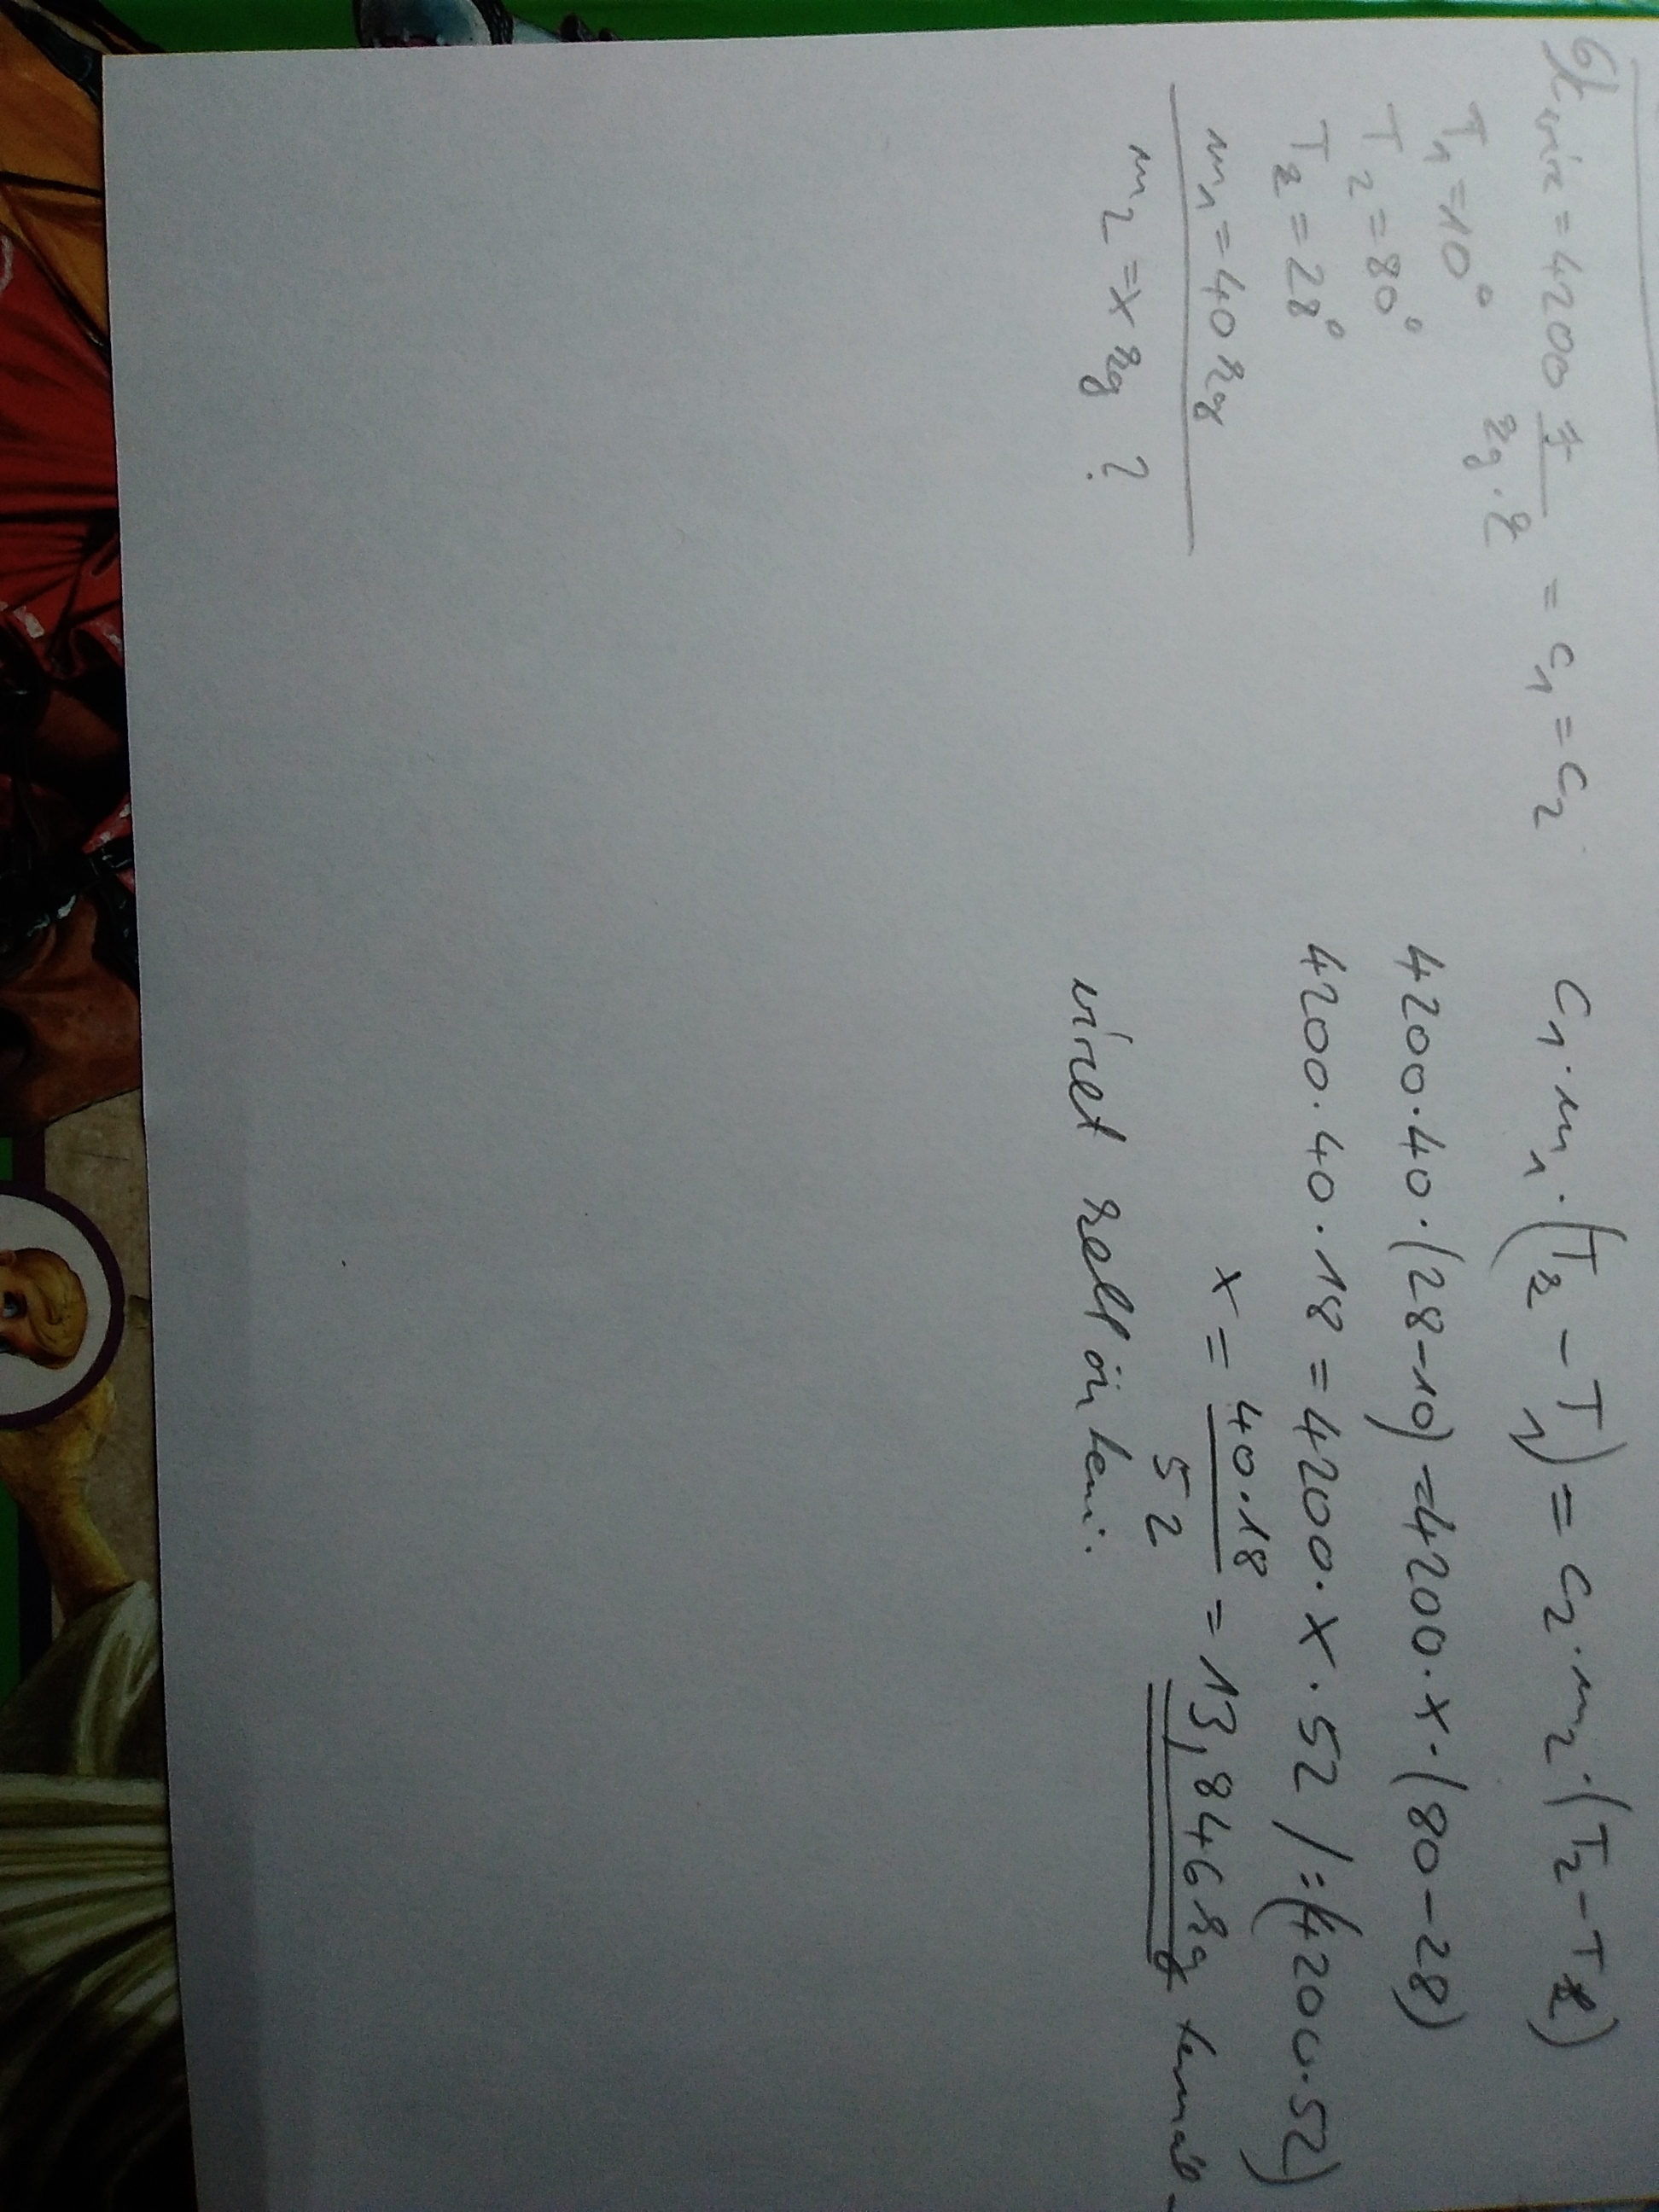 6) c víz = 4200 J/kg·K = c₁ = c₂
T₁ = 10°
T₂ = 80°
T₂ = 28°
m₁ = 40 kg
m₂ = x kg ?
c₁·m₁·(T₂ − T₁) = c₂·m₂·(T₂ − T₂)
4200·40·(28−10) = 4200·x·(80−28)
4200·40·18 = 4200·x·52 /:(4200·52)
x = 40·18/52 = 13,846 kg termál-
vizet kell önteni.